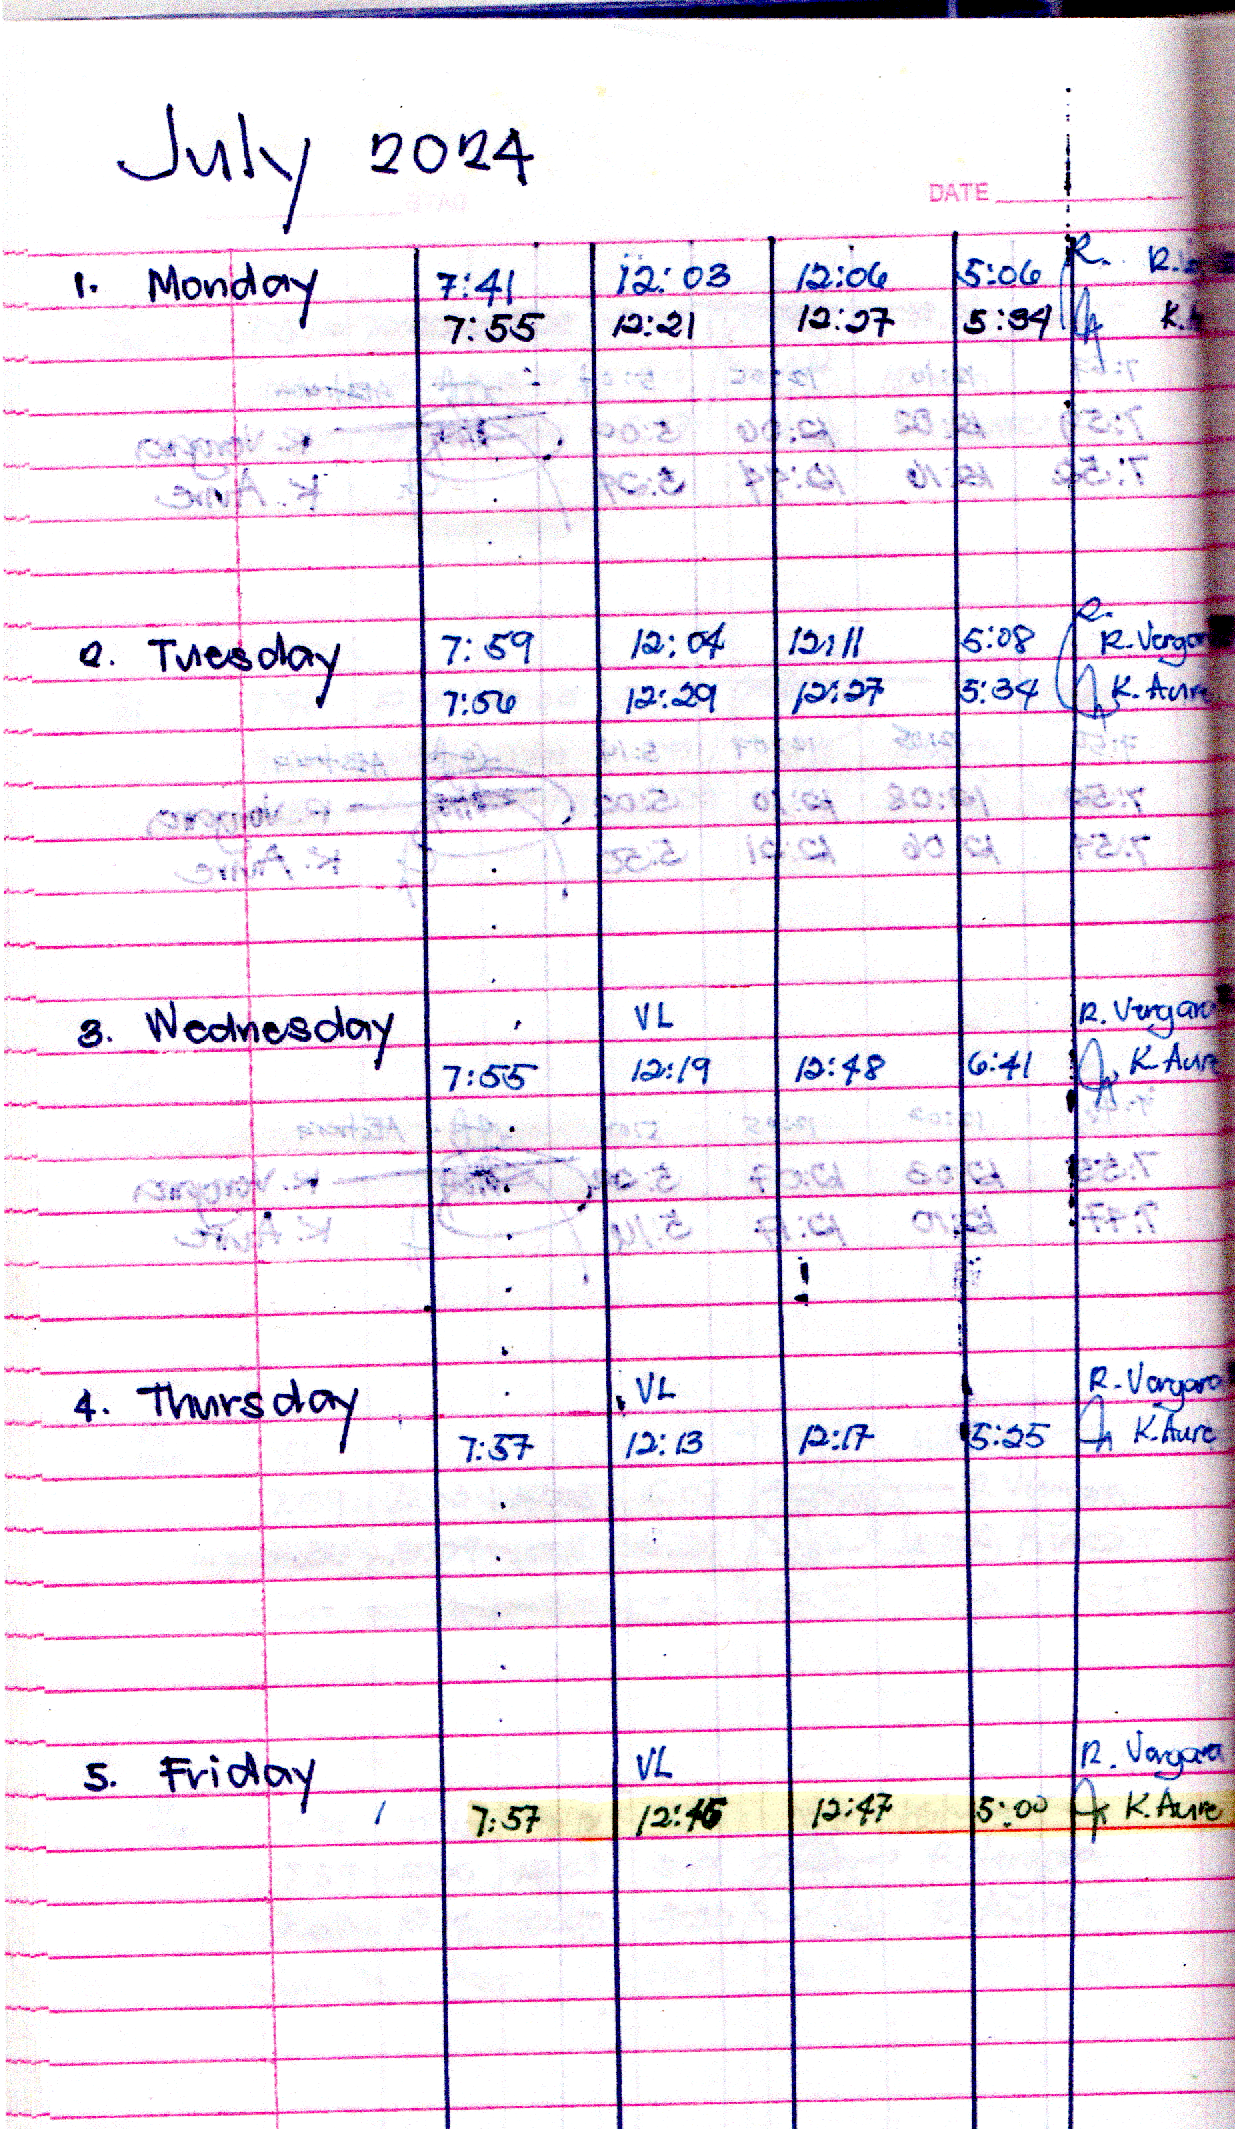 July 2024
DATE
1. Monday 7:41 12:03 12:06 5:06 R.
7:55 12:21 12:27 5:34 K.
2. Tuesday 7:59 12:04 12:11 5:08 R. Vergar
7:56 12:29 12:27 5:34 K. Aure
3. Wednesday VL R. Vergara
7:55 12:19 12:48 6:41 K Aure
4. Thursday VL R. Vergara
7:57 12:13 12:17 5:25 K. Aure
5. Friday VL R. Vergara
7:57 12:45 12:47 5:00 K. Aure